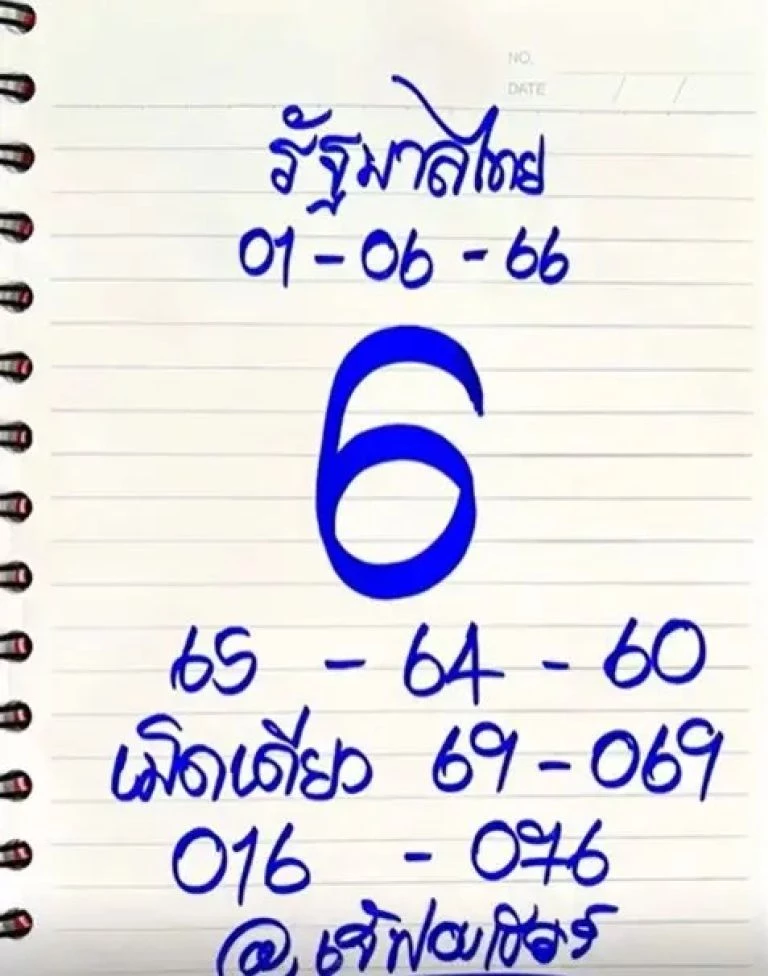 NO.
DATE / /
รัฐบาลไทย
01-06-66
6
65 - 64 - 60
เม็ดเดียว 69-069
016 - 076
@.เจ๊ฟอง